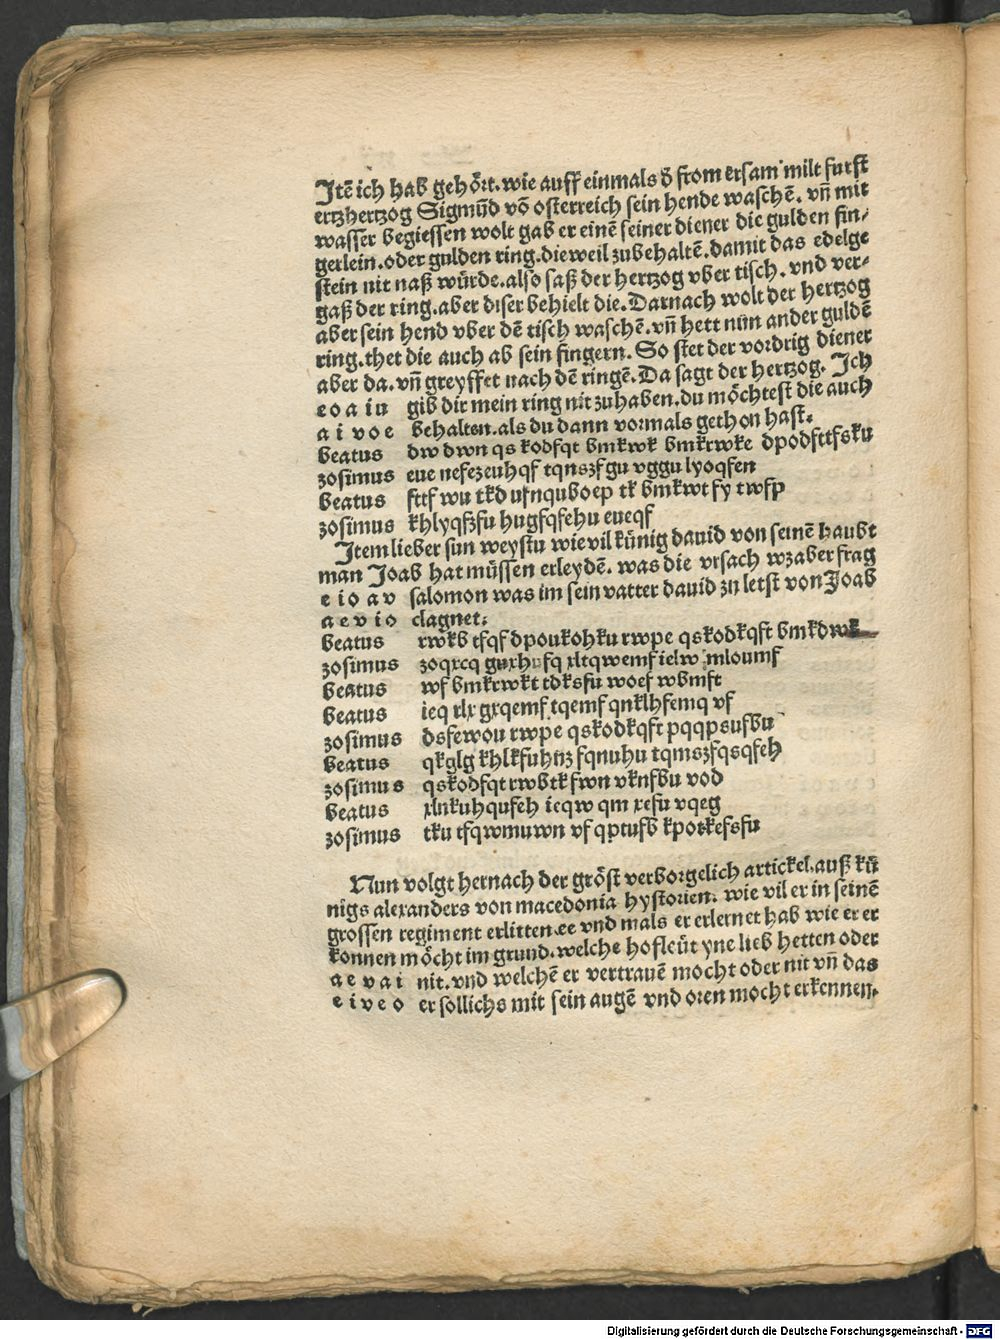 Jtē ich hab gehört. wie auff einmals ð from ersam milt furst
ertzhertzog Sigmūd vō osterreich sein hende waschē. vn̄ mit
wasser begiessen wolt gab er einē seiner diener die gulden fin⸗
gerlein. oder gulden ring. die weil zubehaltē. damit das edelge
stein nit naß würde. also saß der hertzog vber tisch. vnd ver⸗
gaß der ring. aber diser behielt die. Darnach wolt der hertzog
aber sein hend vber dē tisch waschē. vn̄ hett nun ander guldē
ring. thet die auch ab sein fingern. So stet der vordrig diener
aber da. vn̄ greyffet nach dē ringē. Da sagt der hertzog. Jch
e o a i u gib dir mein ring nit zuhaben. du möchtest die auch
a i v o e behalten. als du dann vormals gethon hast.
beatus dw dwn qs kodfqt bmkwk bmkrwke dpodfttfsku
zosimus eue nefezeuhqf tqnszfgu vggu lyoqfen
beatus fttf wu tkd ufnquboep tk bmkwt fy twfp
zosimus khlyqfzfu hugfqfehu eueqf
Jtem lieber sun weystu wie vil künig dauid von seinē haubt
man Joab hat müssen erleydē. was die vrsach wz aber frag
e i o a v salomon was im sein vatter dauid zu letst von Joab
a e v i o clagnet.
beatus rwkb tfqf dpoukohku rwpe qskodkqft bmkdwk
zosimus zoqxcq fq xltqwemf ielw mloumf
beatus wf bmkrwkt tdksfu woef wbmft
beatus ieq xlx gxqemf tqemf qnklhfemq vf
zosimus dsfewou rwpe qskodkqft pqqpsufbu
beatus qkglg khlkfuhnz fqnuhu tqmszfqsqfeh
zosimus qskodfqt rwbtk fwn vknfbu vod
beatus xlnkuhqufeh ieqw qm xefu vqeg
zosimus tku tfqwmuwn vf qptufb kpotkefsfu
Nun volgt hernach der gröst verborgelich artickel. auß kü
nigs alexanders von macedonia hystorien. wie vil er in seinē
grossen regiment erlitten. ee vnd mals er erlernet hab wie er er
konnen möcht im grund. welche hofleüt yne lieb hetten oder
a e v a i nit. vnd welchē er vertrauē mocht oder nit vn̄ das
e i v e o er sollichs mit sein augē vnd oren mocht erkennen.
Digitalisierung gefördert durch die Deutsche Forschungsgemeinschaft - DFG